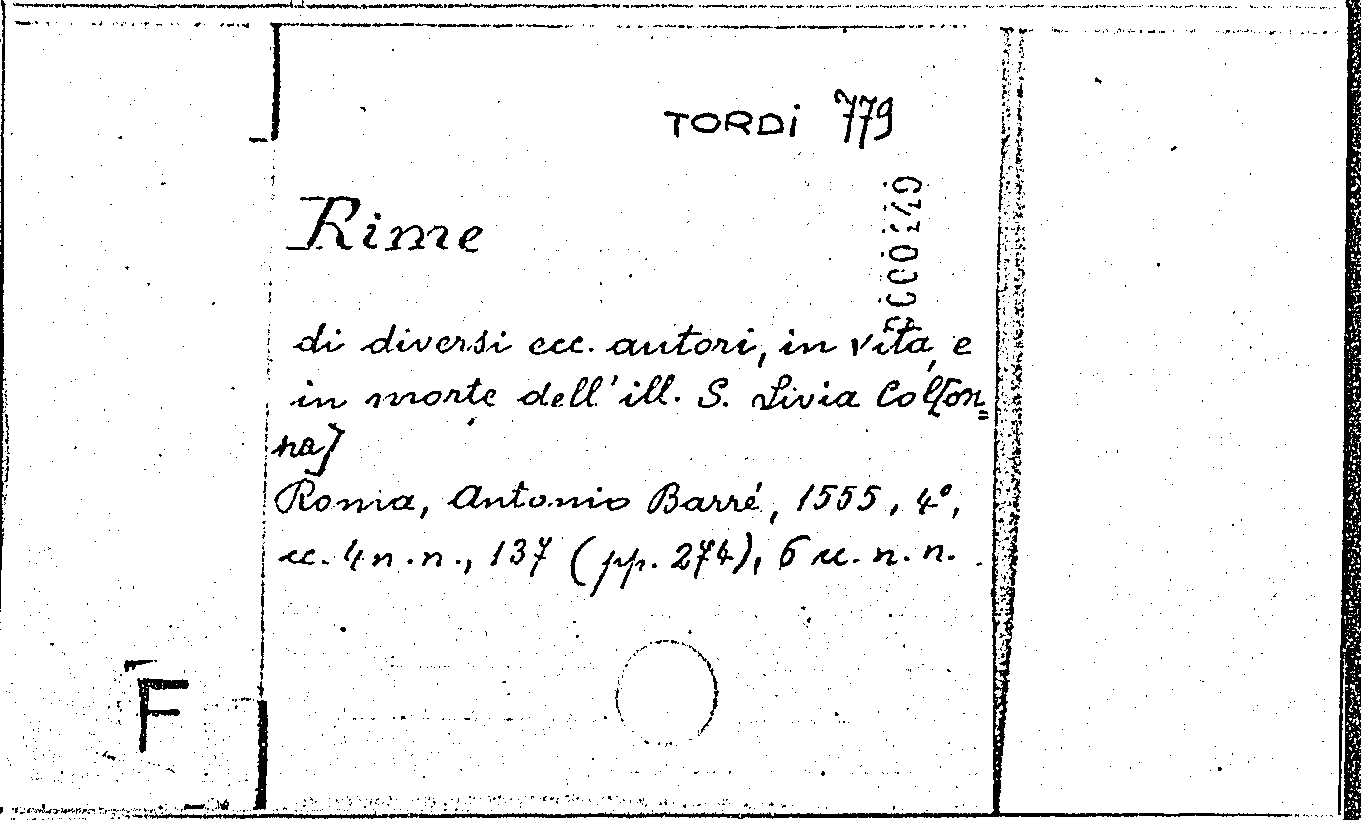 TORDi 779
Rime
di diversi ecc. autori, in vita, e
in morte dell'ill. S. Livia Col[on=
na]
Roma, Antonio Barré, 1555, 4°,
cc. 4 n.n., 137 (pp. 274), 6 cc. n. n.
F